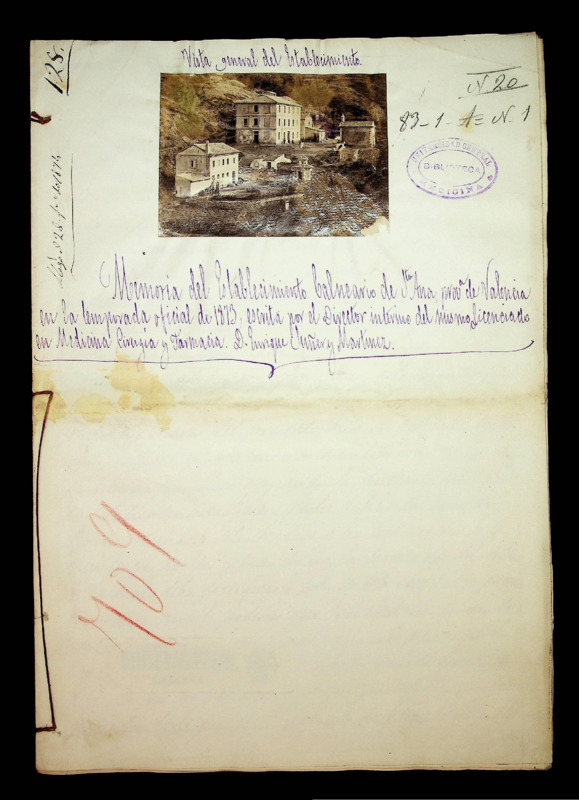 Vista general del Establecimiento.
128.
N. 20
83-1-A= N. 1
UNIVERSIDAD CENTRAL
BIBLIOTECA
MEDICINA
Memoria del Establecimiento balneario de Sta Ana, prov.ª de Valencia
en la temporada oficial de 1873, escrita por el Director interino del mismo, Licenciado
en Medicina Cirugía y Farmacia. D. Enrique y Martinez.
709